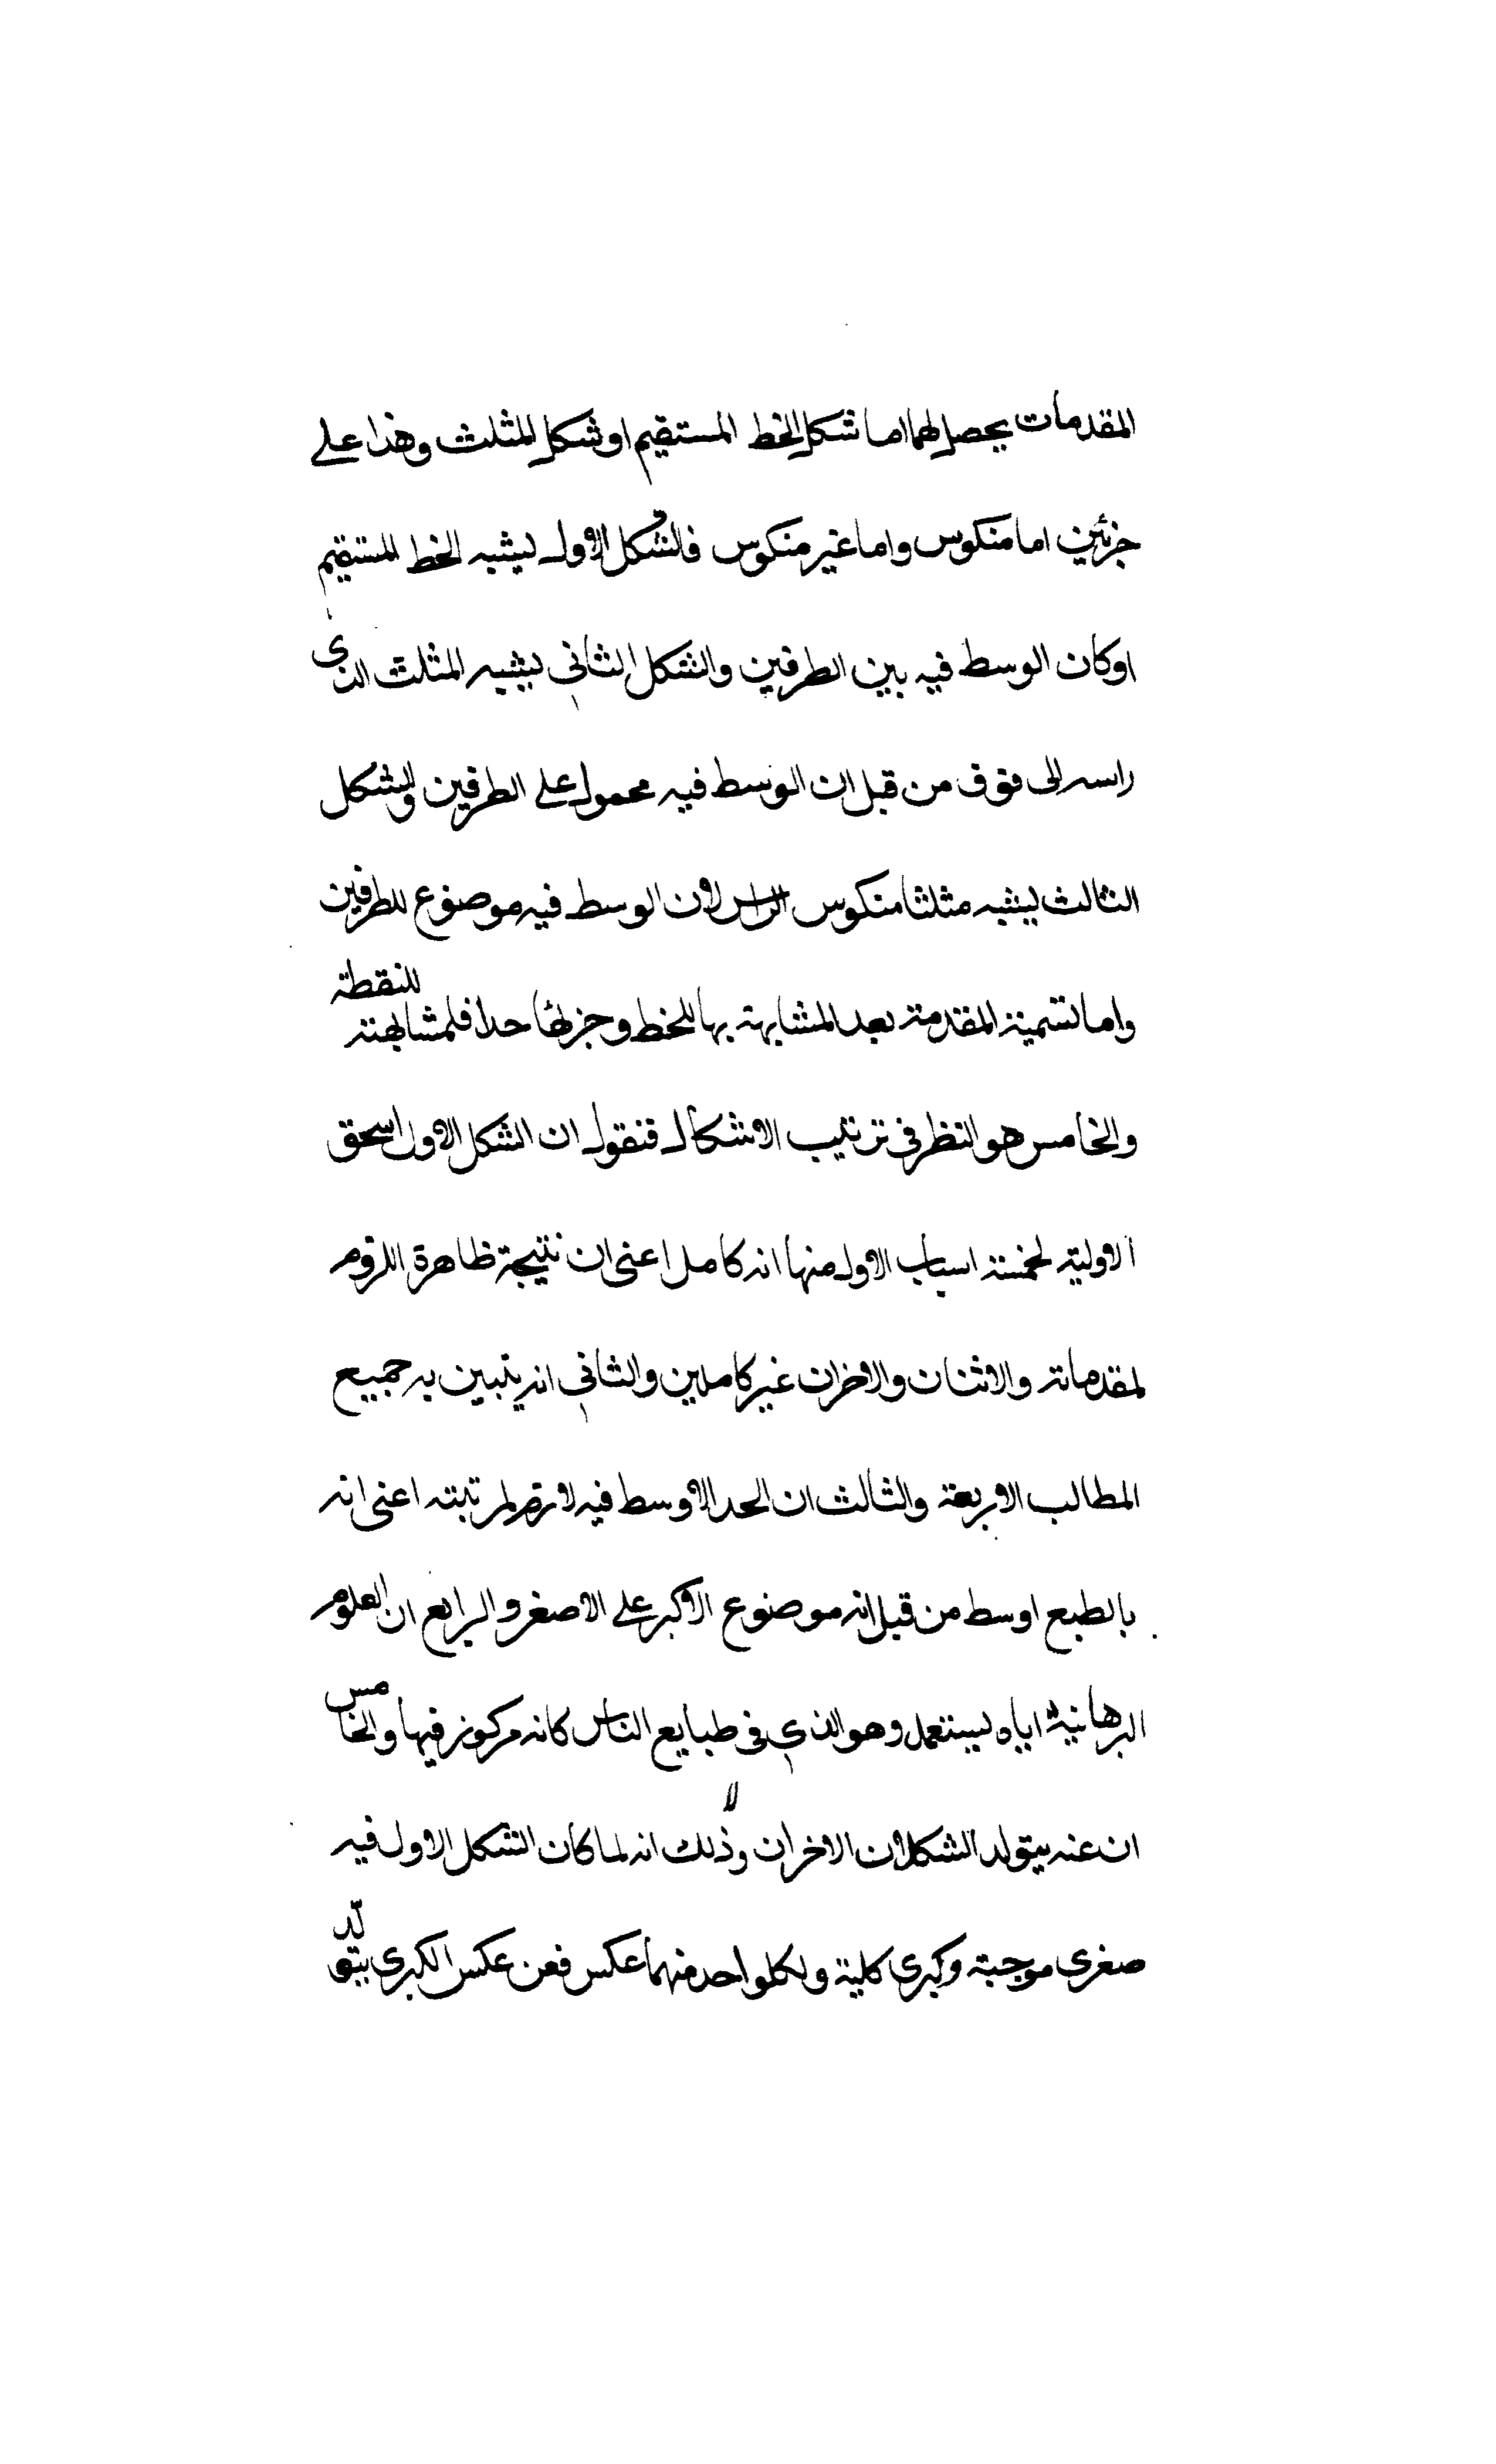 المقدمات يحصل لهما اما شكل الخط المستقيم او شكل المثلث وهذا على
جزئين اما منكوس واما غير منكوس فالشكل الاول يشبه الخط المستقيم
اوكان الوسط فيه بين الطرفين والشكل الثاني يشبه المثلث الذى
راسه الى فوق من قبل ان الوسط فيه محمول على الطرفين والشكل
الثالث يشبه مثلثا منكوس الراس لان الوسط فيه موضوع للطرفين
واما تسمية المقدمة بعد المشابهة بها للخط وجزئها حدا فلمشابهته للنقطة
والخامس هو النظر في ترتيب الاشكال فنقول ان الشكل الاول اسحق
الاولية لخمسة اسباب الاول منها انه كامل اعنى ان نتيجة ظاهرة اللزوم
لمقدماته والاثنان والاخران غير كاملين والثاني انه يتبين به جميع
المطالب الاربعة والثالث ان الحد الاوسط فيه لازم لمرتبته اعنى انه
بالطبع اوسط من قبل انه موضوع الاكبر على الاصغر والرابع ان العلوم
البرهانية اياه يستعمل وهو الذي في طبايع الناس كانه مركوز فيها والخامس
ان عنه يتولد الشكلان الاخران وذلك انه لما كان الشكل الاول فيه
صغرى موجبة وكبرى كلية ولكلواحد منهما عكس فعن عكس الكبرى يتولد